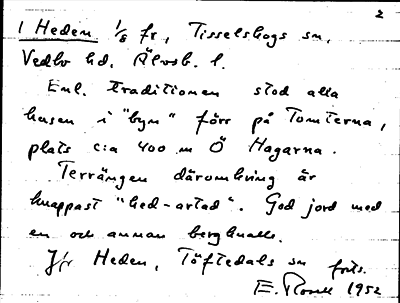 2
1 Heden 1/8 fr, Tisselskogs sn,
Vedbo hd. Älvsb. l.
Enl. traditionen stod alla
husen i "byn" förr på Tomterna,
plats c:a 400 m Ö Hagarna.
Terrängen däromkring är
knappast "hed-artad". God jord med
en och annan bergknalle.
Jfr Heden, Töftedals sn forts.
E. Rosell 1952